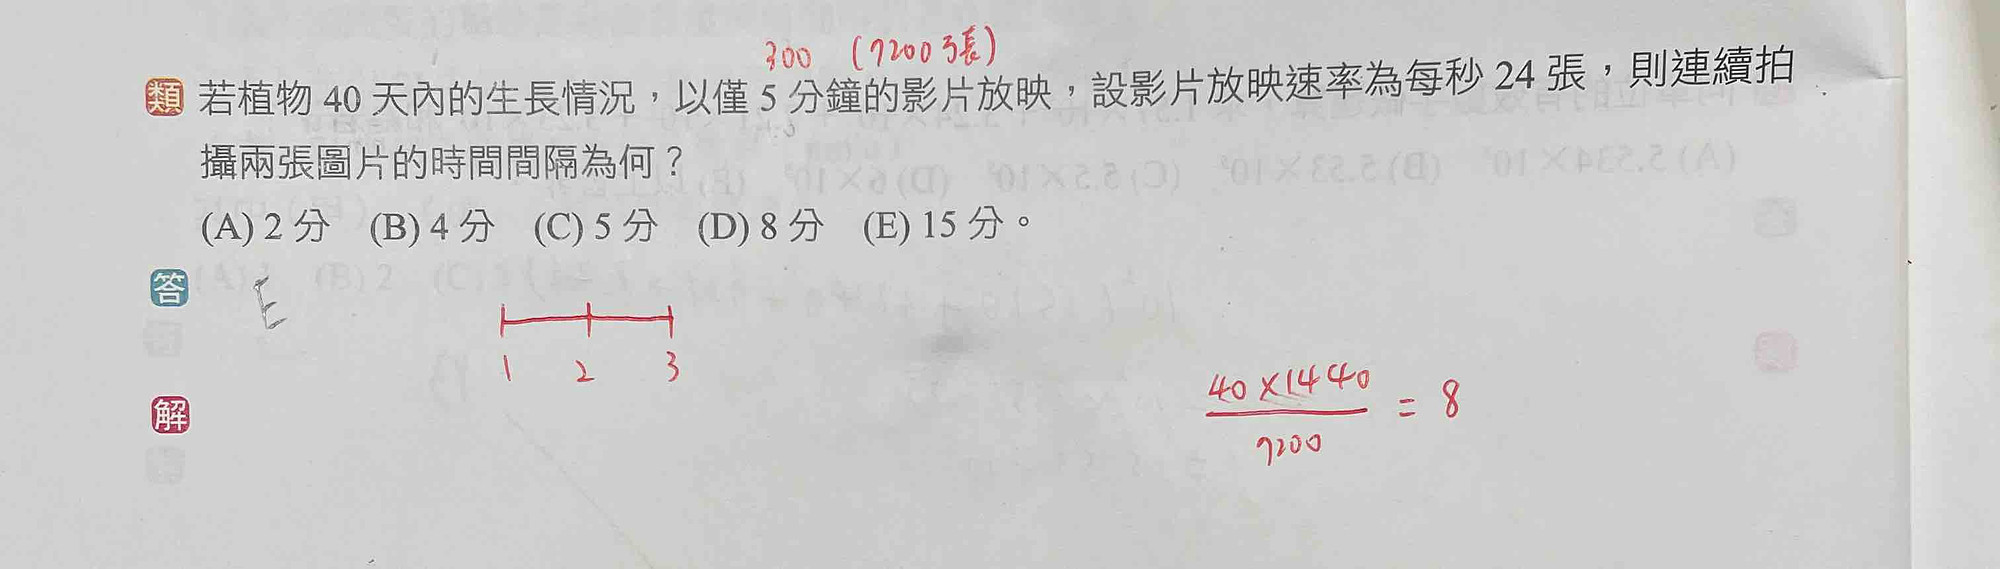 300 (7200張)
類 若植物 40 天內的生長情況，以僅 5 分鐘的影片放映，設影片放映速率為每秒 24 張，則連續拍
攝兩張圖片的時間間隔為何？
(A) 2 分 (B) 4 分 (C) 5 分 (D) 8 分 (E) 15 分。
答 E
1 2 3
解
40×1440
= 8
7200